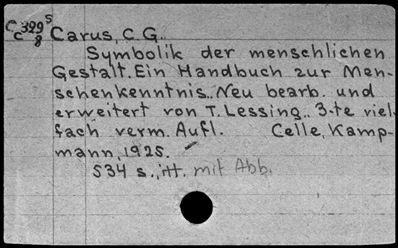 Cc 399 5
c 8
Carus, C. G.
Symbolik der menschlichen
Gestalt. Ein Handbuch zur Men-
schenkenntnis. Neu bearb. und
erweitert von T. Lessing.. 3-te viel-
fach verm. Aufl. Celle, Kamp-
mann, 1925.
534 s., mit Abb.